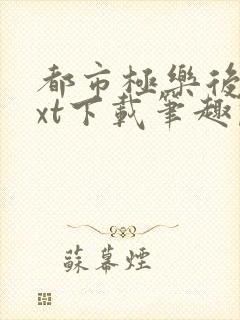 都市極樂後
xt下載筆趣
蘇幕煙